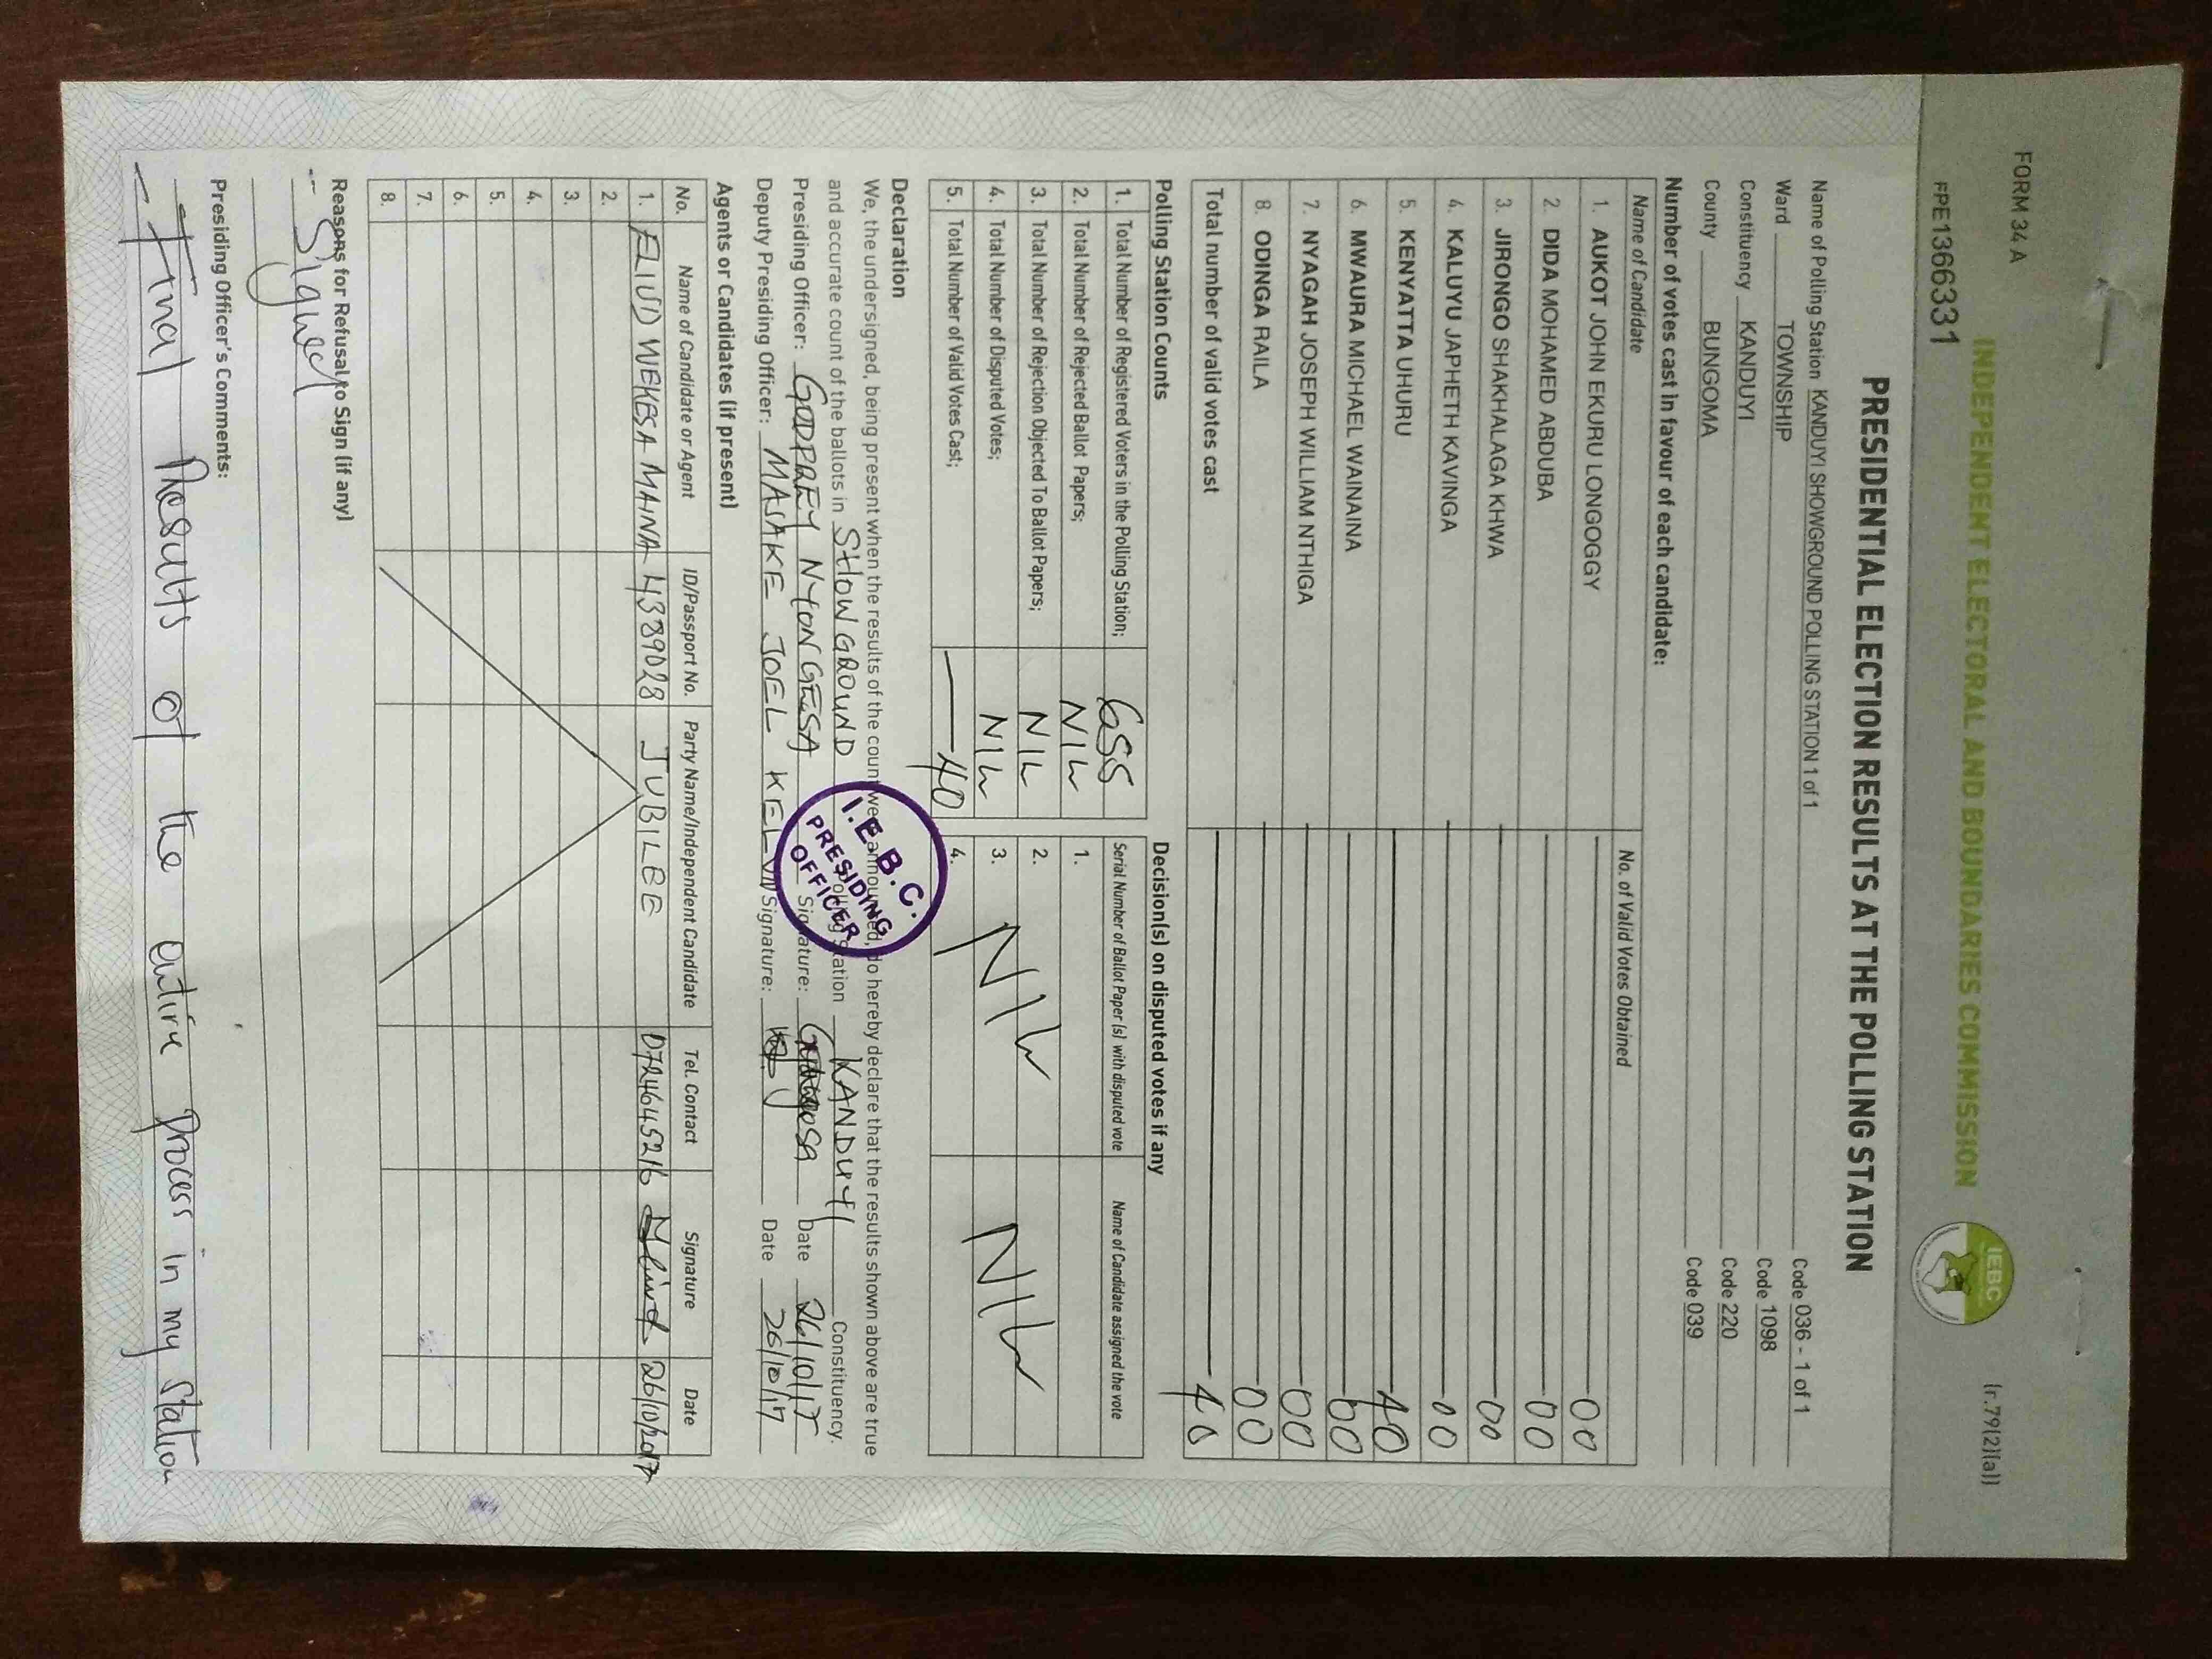 FORM 34 A
(r.79(2)(a))
INDEPENDENT ELECTORAL AND BOUNDARIES COMMISSION
IEBC
FPE1366331
PRESIDENTIAL ELECTION RESULTS AT THE POLLING STATION
Name of Polling Station KANDUYI SHOWGROUND POLLING STATION 1 of 1 Code 036 - 1 of 1
Ward TOWNSHIP Code 1098
Constituency KANDUYI Code 220
County BUNGOMA Code 039
Number of votes cast in favour of each candidate:
Name of Candidate No. of Valid Votes Obtained
1. AUKOT JOHN EKURU LONGOGGY 00
2. DIDA MOHAMED ABDUBA 00
3. JIRONGO SHAKHALAGA KHWA 00
4. KALUYU JAPHETH KAVINGA 00
5. KENYATTA UHURU 40
6. MWAURA MICHAEL WAINAINA 00
7. NYAGAH JOSEPH WILLIAM NTHIGA 00
8. ODINGA RAILA 00
Total number of valid votes cast 40
Polling Station Counts
1. Total Number of Registered Voters in the Polling Station; 655
2. Total Number of Rejected Ballot Papers; NIL
3. Total Number of Rejection Objected To Ballot Papers; NIL
4. Total Number of Disputed Votes; NIL
5. Total Number of Valid Votes Cast; 40
Decision(s) on disputed votes if any
Serial Number of Ballot Paper (s) with disputed vote Name of Candidate assigned the vote
1.
2.
3. NIL NIL
4.
Declaration
We, the undersigned, being present when the results of the count were announced, do hereby declare that the results shown above are true
and accurate count of the ballots in SHOWGROUND polling station KANDUYI Constituency.
Presiding Officer: GODFREY NYONGESA Signature: Date 26/10/17
Deputy Presiding Officer: MASAKE JOEL KELVIN Signature: Date 26/10/17
I.E.B.C.
PRESIDING
OFFICER
Agents or Candidates (if present)
No. Name of Candidate or Agent ID/Passport No. Party Name/Independent Candidate Tel. Contact Signature Date
1. ELIUD WEKESA MAINA 4389028 JUBILEE 0724645216 26/10/2017
2.
3.
4.
5.
6.
7.
8.
Reasons for Refusal to Sign (if any)
Signed
Presiding Officer's Comments:
Final Results of the entire process in my station